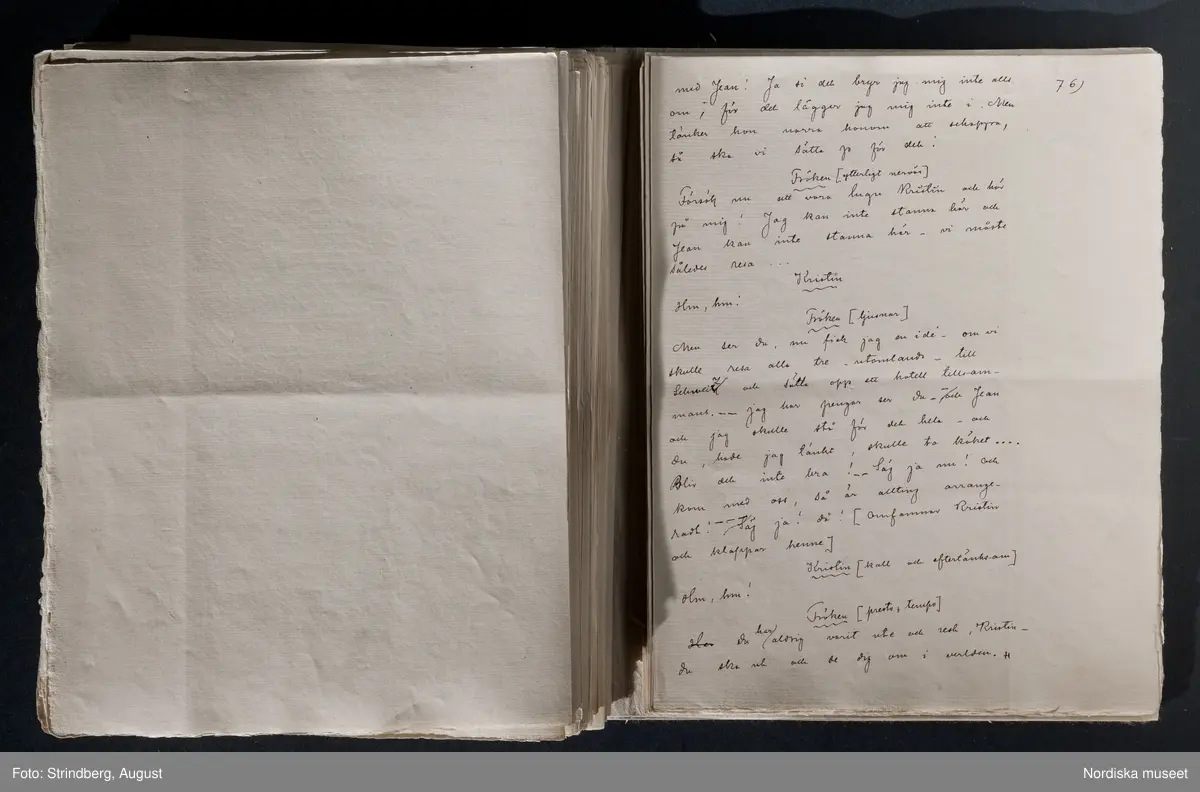 76)
med Jean! Ja si det bryr jag mig inte alls
om; för det lägger jag mig inte i. Men
tänker hon narra honom att schappa,
så ska vi sätta p för det!
Fröken [ytterligt nervös]
Försök nu att vara lugn Kristin och hör
på mig! Jag kan inte stanna här och
Jean kan inte stanna här – vi måste
således resa ...
Kristin
Hm, hm!
Fröken [ljusnar]
Men ser du, nu fick jag en idé – om vi
skulle resa alla tre – utomlands – till
Schweitz och sätta opp ett hotell tillsam-
mans. –– jag har pengar ser du – och Jean
och jag skulle stå för det hela – och
du, hade jag tänkt, skulle ta köket....
Blir det inte bra! –– Säj ja nu! Och
kom med oss, så är allting arrange-
radt! –– Säj ja! då! [Omfamnar Kristin
och klappar henne]
Kristin [kall och eftertänksam]
Hm, hm!
Fröken [presto, tempo]
Har Du har aldrig varit ute och rest, Kristin –
du ska ut och se dig om i verlden. H
Foto: Strindberg, August
Nordiska museet